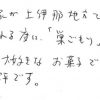 家が上伊那地方で
れる度に、「巣ごもり」
大好きなお菓子で
語です。